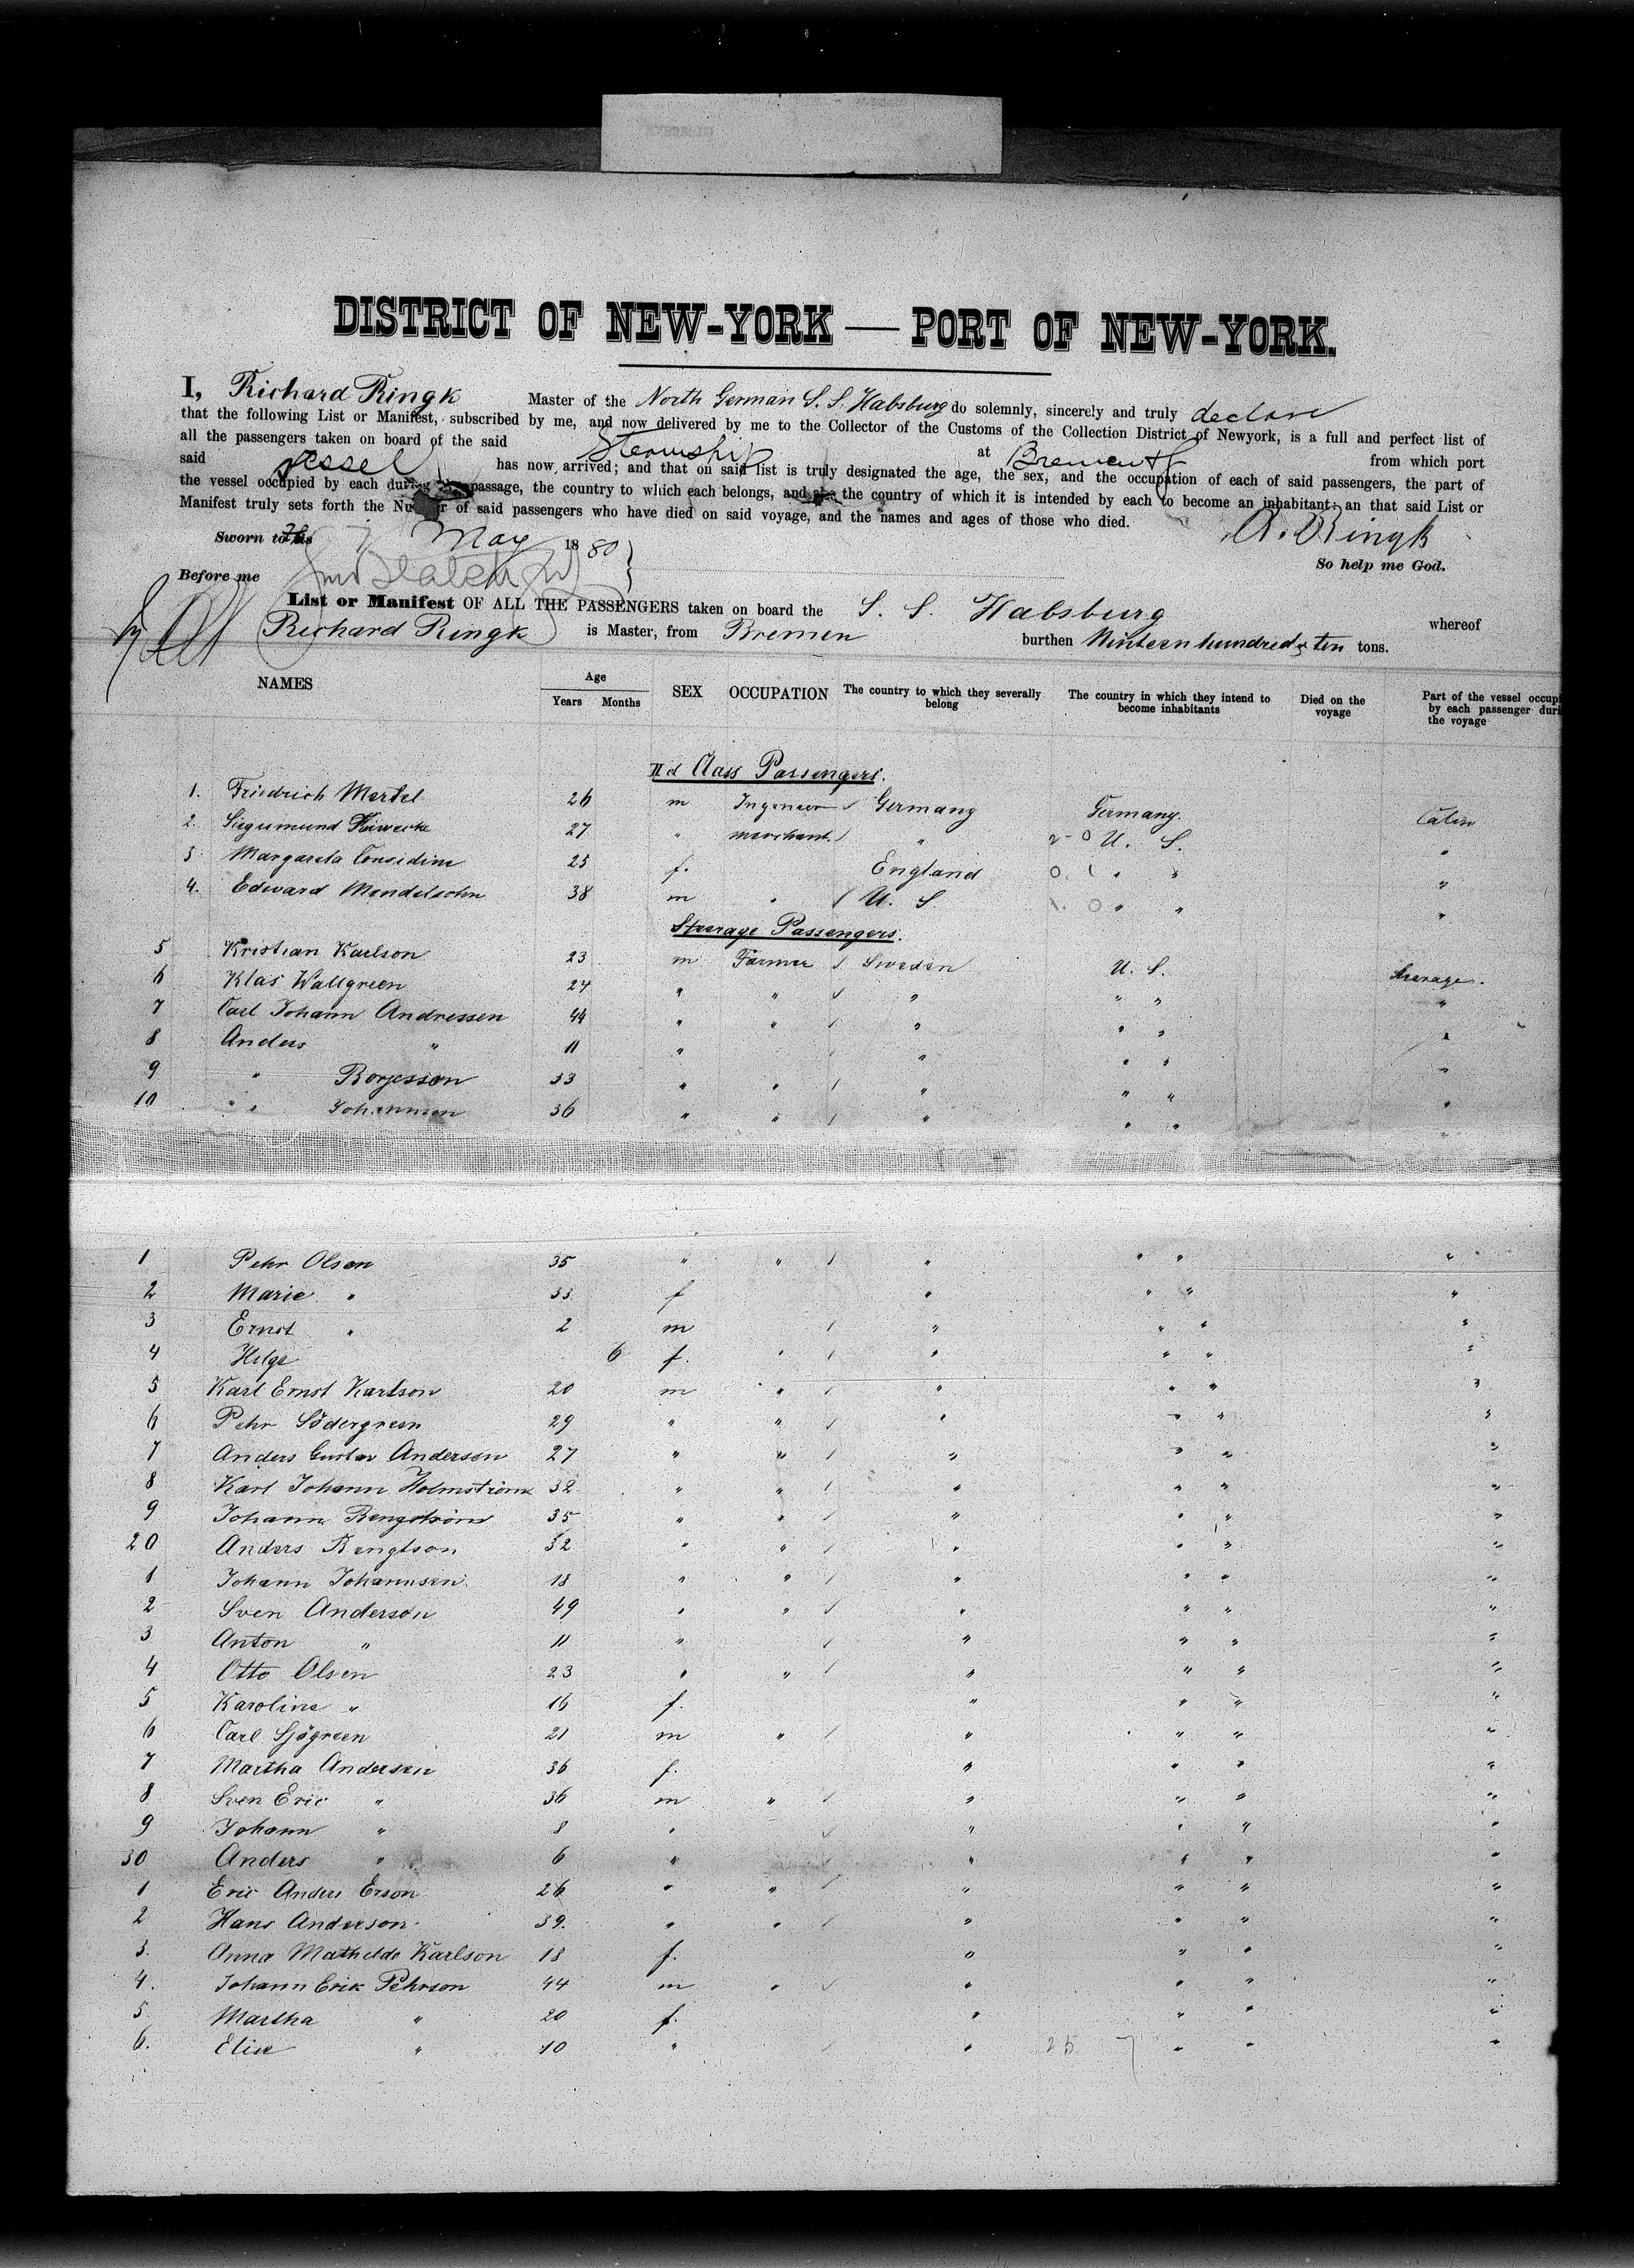 DISTRICT OF NEW-YORK — PORT OF NEW-YORK.
I, Richard Ringk Master of the North German S. S. Habsburg do solemnly, sincerely and truly declare
that the following List or Manifest, subscribed by me, and now delivered by me to the Collector of the Customs of the Collection District of Newyork, is a full and perfect list of
all the passengers taken on board of the said Steamship at Bremen from which port
said vessel has now arrived; and that on said list is truly designated the age, the sex, and the occupation of each of said passengers, the part of
the vessel occupied by each during passage, the country to which each belongs, and the country of which it is intended by each to become an inhabitant; an that said List or
Manifest truly sets forth the of said passengers who have died on said voyage, and the names and ages of those who died.
Sworn to this 7 May 1880 R. Ringk
So help me God.
Before me
List or Manifest OF ALL THE PASSENGERS taken on board the S. S. Habsburg whereof
Richard Ringk is Master, from Bremen burthen Ninteen hundred & ten tons.
NAMES Age Years Months SEX OCCUPATION The country to which they severally belong The country in which they intend to become inhabitants Died on the voyage Part of the vessel occupi by each passenger duri the voyage
IId Class Passengers.
1. Friedrich Mertel 26 m Ingeneer ✓ Germany Germany. Cabin
2. Siegesmund 27 " merchant ✓ " 2-0 U. S. "
3 Margareta Considine 25 f. England 0. 1 " " "
4. Edward Mendelsohn 38 m " ✓ U. S. 1. 0 " " "
Steerage Passengers.
5 Kristian Karlson 23 m Farmer ✓ Sweden U. S. Steerage.
6 Klas Wallgreen 24 " " ✓ " " " "
7 Carl Johann Andressen 44 " " ✓ " " " "
8 Anders " 11 " ✓ " " " "
9 " Borjesson 33 " " ✓ " " " "
10 " " Johannson 36 " " ✓ " " "
1 Pehr Olsen 35 " " ✓ " " " "
2 Marie " 33 f " " " "
3 Ernst " 2 m ✓ " " " "
4 Helge 6 f. " ✓ " " " "
5 Karl Ernst Karlson 20 m " ✓ " " " "
6 Pehr Södergreen 29 " " ✓ " " " "
7 Anders Gustav Andersen 27 " " ✓ " " " "
8 Karl Johann Holmström 32 " " ✓ " " " "
9 Johann Bengström 35 " " ✓ " " " "
20 Anders Bengtson 32 " " ✓ " " " "
1 Johann Johannsen 18 " " ✓ " " " "
2 Sven Anderson 49 " " ✓ " " " "
3 Anton " 11 " ✓ " " " "
4 Otto Olsen 23 " " ✓ " " " "
5 Karoline " 16 f. " " " "
6 Carl Sjögreen 21 m " ✓ " " " "
7 Martha Andersen 36 f. " " " "
8 Sven Eric " 36 m " ✓ " " " "
9 Johann " 8 " ✓ " " " "
30 Anders " 6 " ✓ " " " "
1 Eric Anders Erson 26 " " ✓ " " " "
2 Hans Anderson 39. " " ✓ " " " "
3. Anna Mathilde Karlson 18 f. " " " "
4. Johann Erik Pehrson 44 m " ✓ " " " "
5 Martha " 20 f. " " " "
6. Elise " 10 " ✓ " 25 7 " " "